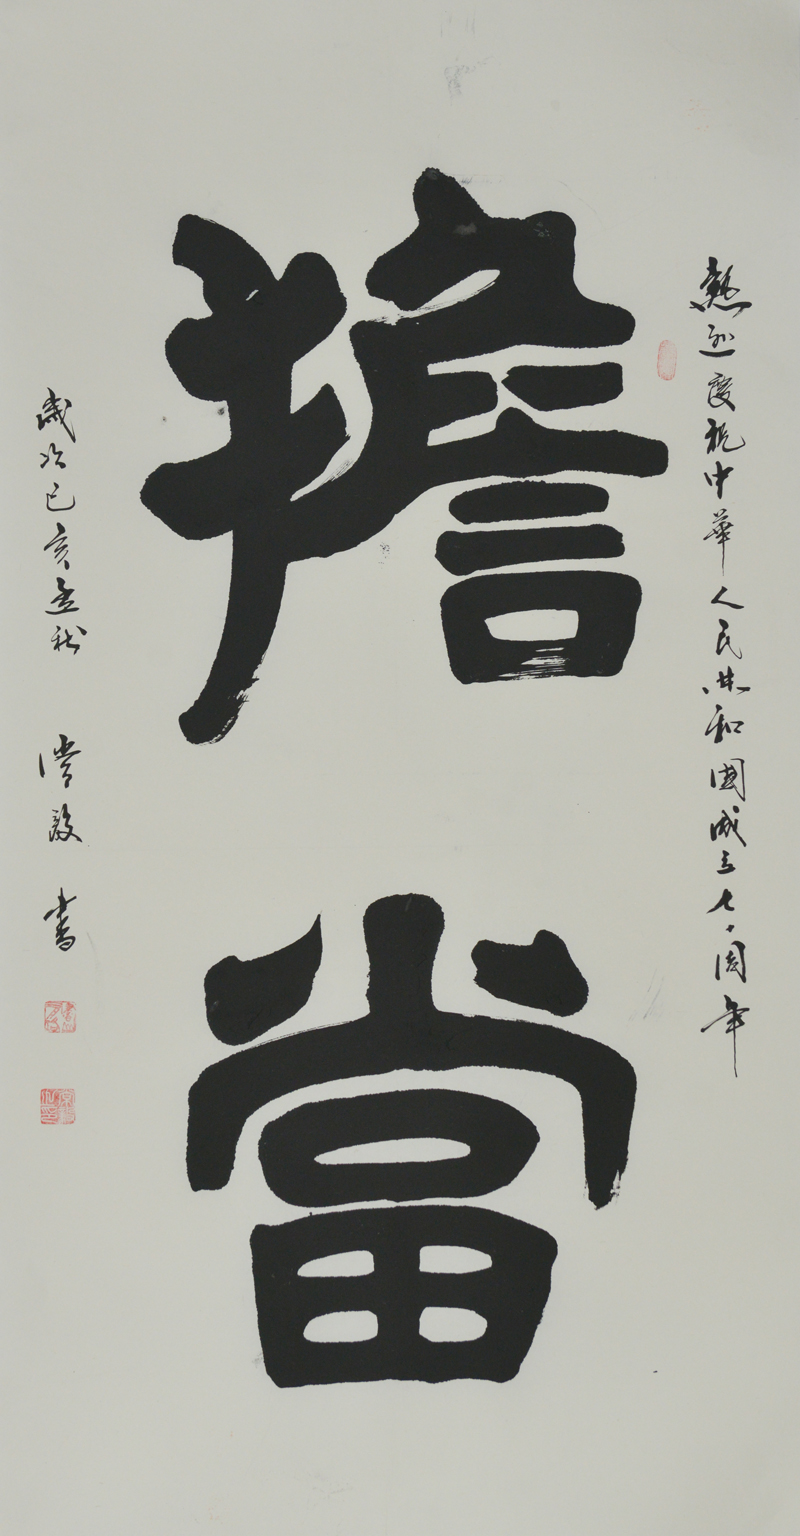 熱烈慶祝中華人民共和國成立七十周年
擔當
歲次己亥孟秋
毅書